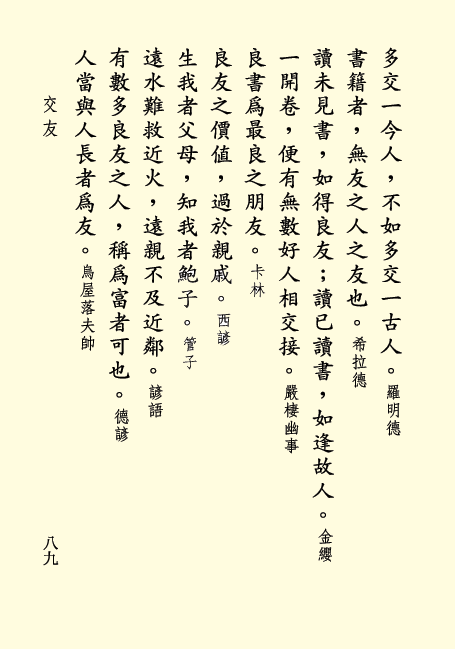 多交一今人，不如多交一古人。羅明德
書籍者，無友之人之友也。希拉德
讀未見書，如得良友；讀已讀書，如逢故人。金纓
一開卷，便有無數好人相交接。嚴棲幽事
良書爲最良之朋友。卡林
良友之價值，過於親戚。西諺
生我者父母，知我者鮑子。管子
遠水難救近火，遠親不及近鄰。諺語
有數多良友之人，稱爲富者可也。德諺
人當與人長者爲友。烏屋落夫帥
交友
八九